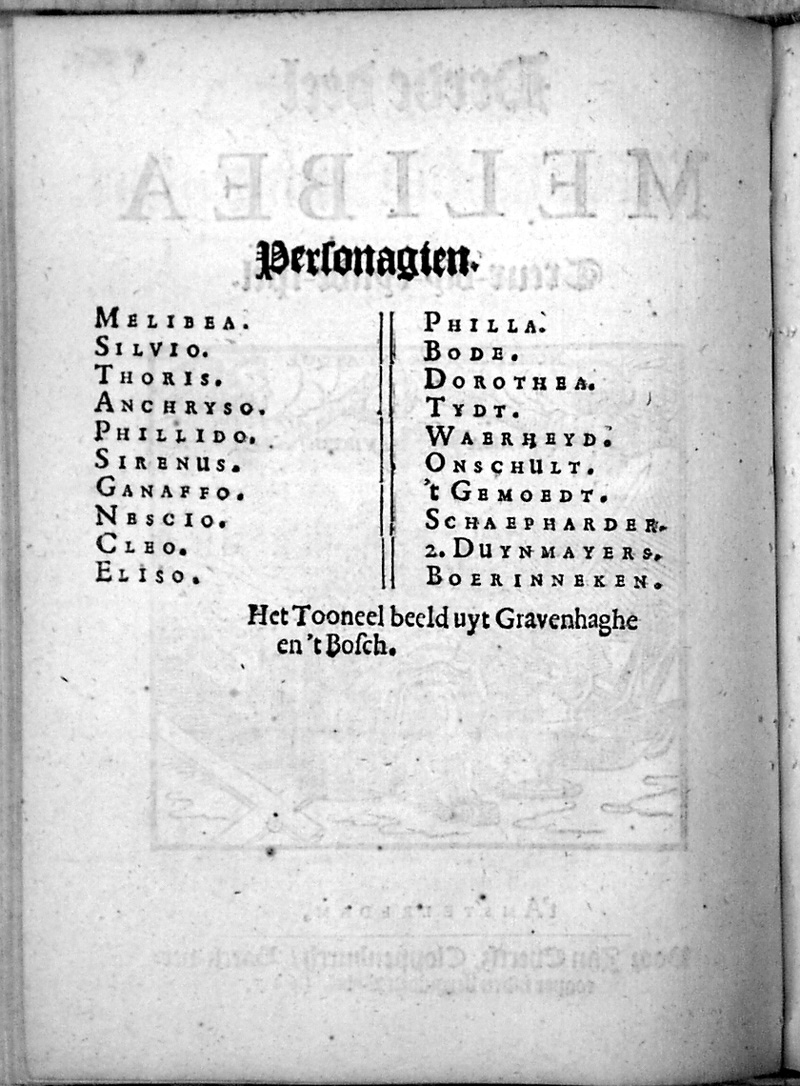 Perſonagien.
MELIBEA.
SILVIO.
THORIS.
ANCHRYSO.
PHILLIDO.
SIRENUS.
GANAFFO.
NESCIO.
CLEO.
ELISO.
PHILLA.
BODE.
DOROTHEA.
TYDT.
WAERHEYD.
ONSCHULT.
't GEMOEDT.
SCHAEPHARDER.
2. DUYNMAYERS.
BOERINNEKEN.
Het Tooneel beeld uyt Gravenhaghe
en 't Boſch.